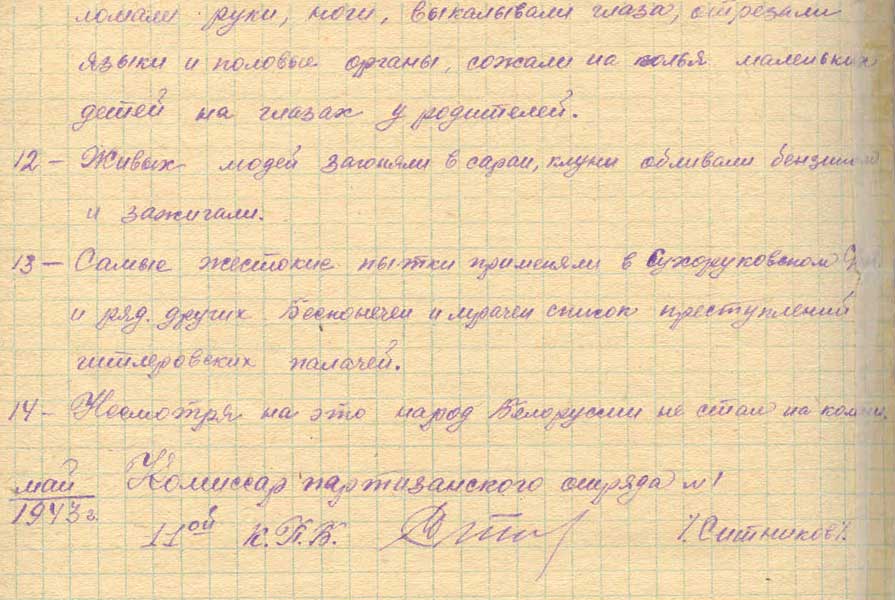 ломали руки, ноги, выкалывали глаза, отрезали
языки и половые органы, сожали на колья маленьких
детей на глазах у родителей.
12 - Живых людей загоняли в сараи, клуни обливали бензином
и зажигали.
13 - Самые жестокие пытки применяли в Сухоруковском
и ряд. других Бесконечен и мрачен список преступлений
гитлеровских палачей.
14 - Несмотря на это народ Белоруссии не стал на колени.
май Комиссар партизанского отряда №1
1943 г.
11ой К.П.Б. /.Ситников/.